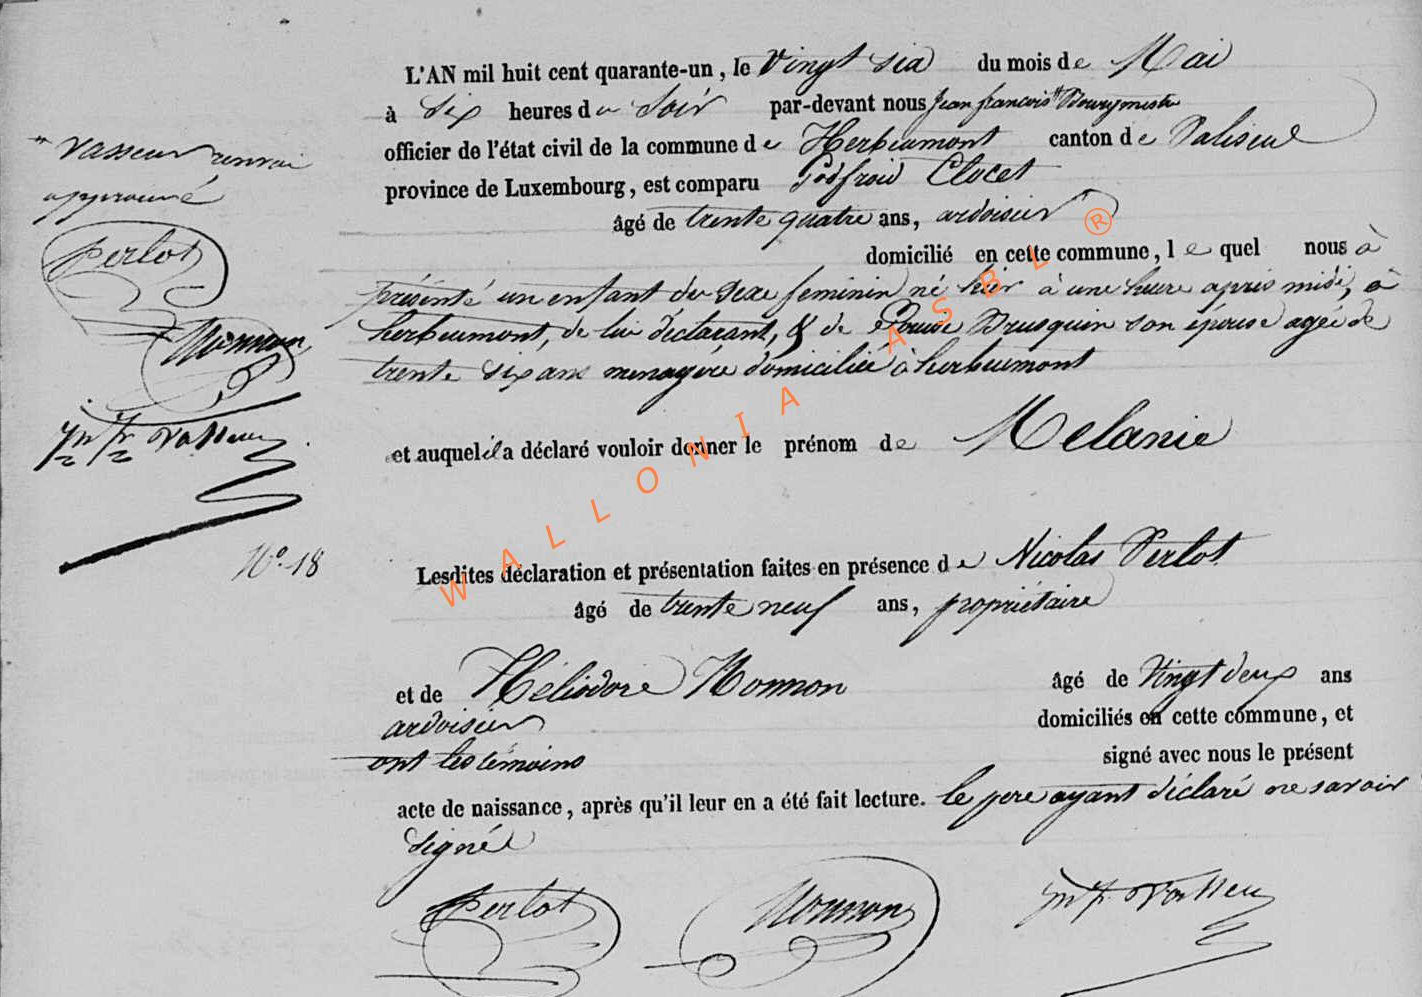 L'AN mil huit cent quarante-un, le Vingt six du mois de Mai
à Six heures du Soir par-devant nous Jean francois " Bourgmestre
officier de l'état civil de la commune de Herbeumont canton de Paliseul
province de Luxembourg, est comparu Godfroid Clocet
âgé de trente quatre ans, ardoisier
domicilié en cette commune, lequel nous à
présenté un enfant du Sexe feminin né hier à une heure après midi, à
herbeumont, de lui déclarant, & de Louise Brusquin son épouse agée de
trente six ans menagére domiciliée à herbeumont
et auquel il a déclaré vouloir donner le prénom de Melanie
Lesdites déclaration et présentation faites en présence de Nicolas Perlot
âgé de trente neuf ans, propriétaire
et de Héliodore Monmon âgé de Vingt deux ans
ardoisier domiciliés en cette commune, et
ont les témoins signé avec nous le présent
acte de naissance, après qu'il leur en a été fait lecture. le pere ayant déclaré ne savoir
signér
Perlot Monmon Jn fr Vasseur
" Vasseur renvoi
approuvé
Perlot
Monmon
Jn fr Vasseur
N° 18
WALLONIA ASBL ®